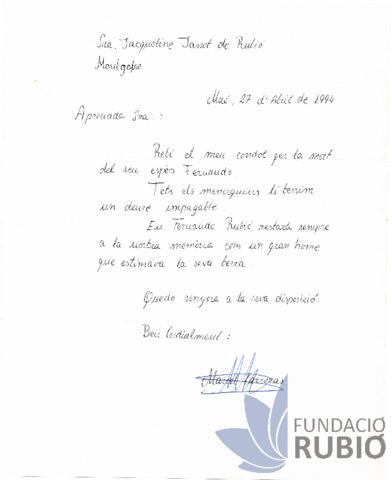 Sra. Jacqueline Janot de Rubió
Montgofre
Maó, 27 d'Abril de 1994
Apreciada Sra.:
Rebi el meu condol per la mort
del seu espòs Fernando.
Tots els menorquins li tenim
un deure impagable.
En Fernando Rubió restarà sempre
a la nostra memòria com un gran home
que estimava la seva terra.
Quedo senyora a la seva disposició.
Ben Cordialment:
FUNDACIÓ
RUBIÓ